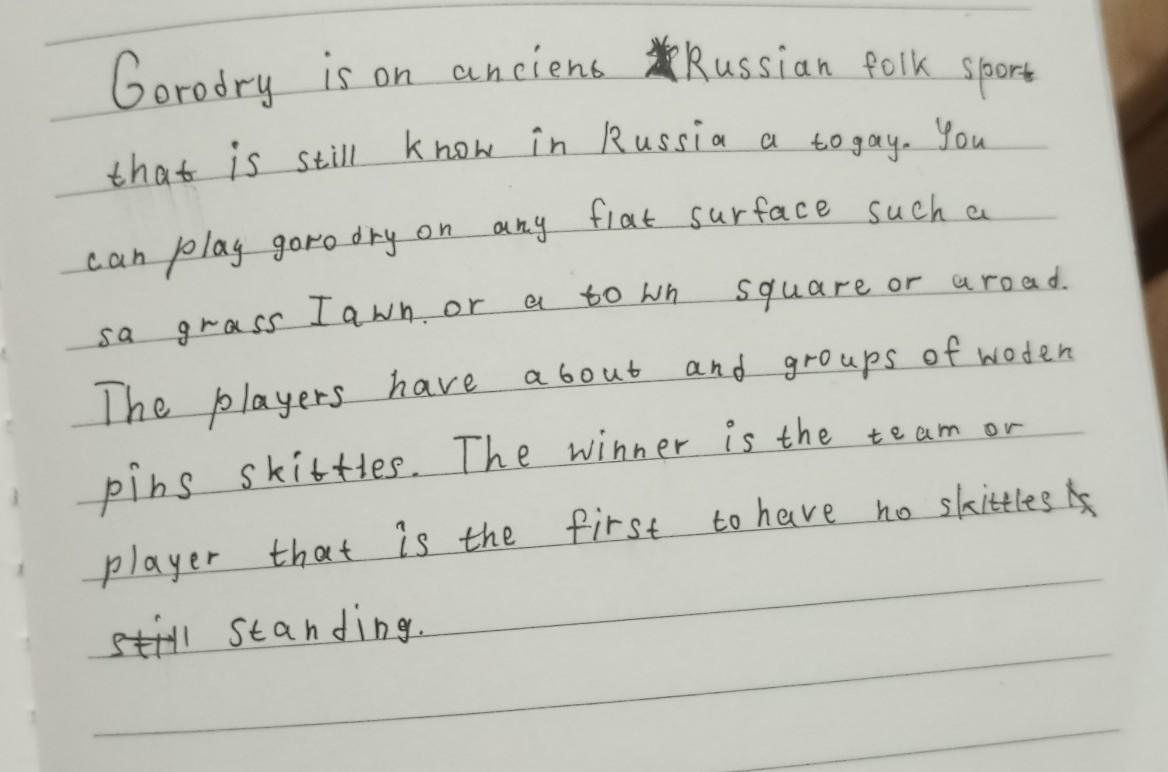 Gorodry is on ancient Russian folk sport
that is still know in Russia a togay. You
can play gorodry on any flat surface such a
sa grass Iawn. or a town square or a road.
The players have about and groups of woden
pins skittles. The winner is the team or
player that is the first to have no skittles
still standing.